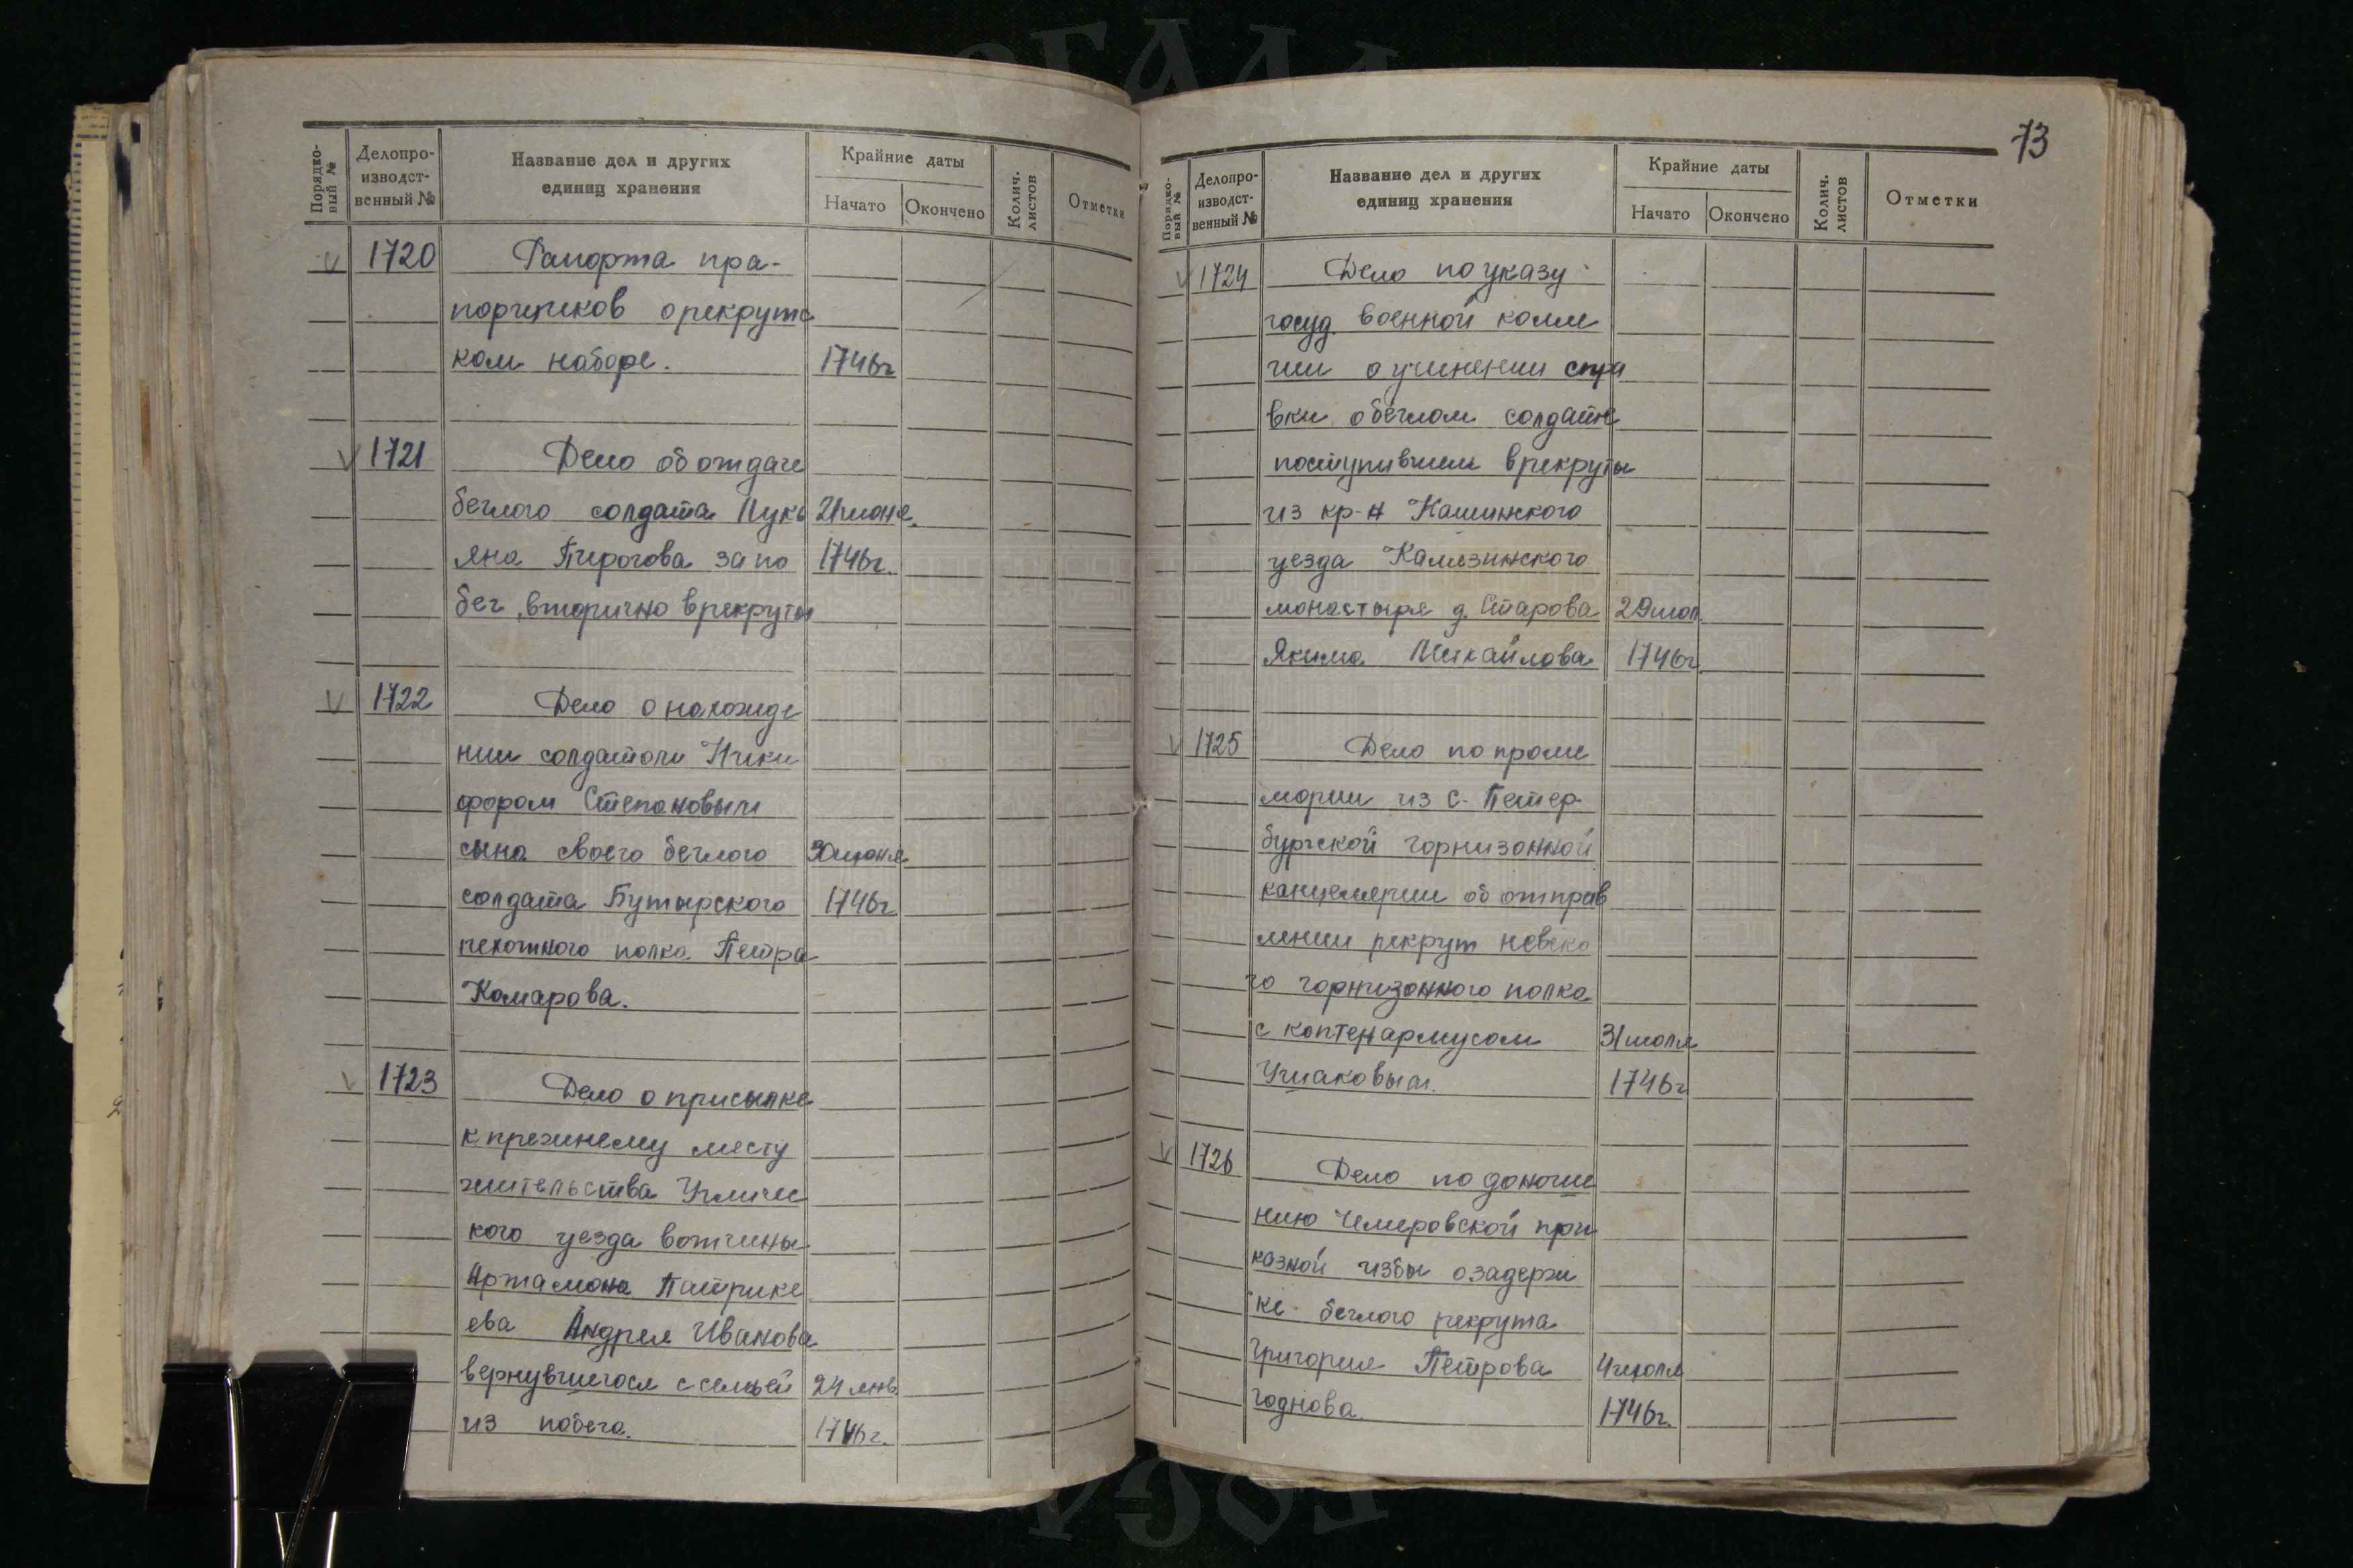 Порядко-
вый №
Делопро-
изводст-
венный №
Название дел и других
единиц хранения
Крайние даты
Начато
Окончено
Колич.
листов
Отметки
1720 Рапорта пра-
порщиков о рекрутс
ком наборе. 1746г
1721 Дело об отдаче
беглого солдата Лукь 21 июня
яна Пирогова за по 1746г.
бег, вторично в рекруты
1722 Дело о нахожде
нии солдатом Ники
фором Степановым
сына своего беглого 30 июня
солдата Бутырского 1746г
пехотного полка Петра
Комарова.
1723 Дело о присылке
к прежнему месту
жительства Угличс
кого уезда вотчины
Артамона Патрике
ева Андрея Иванова
вернувшегося с семьей 24 янв.
из побега. 1746г.
73
Порядко-
вый №
Делопро-
изводст-
венный №
Название дел и других
единиц хранения
Крайние даты
Начато
Окончено
Колич.
листов
Отметки
1724 Дело по указу
госуд. военной колле
гии о учинении спра
вки о беглом солдате
поступившем в рекруты
из кр-н Кашинского
уезда Калязинского
монастыря д. Старова 29 июл.
Якима Михайлова 1746г
1725 Дело по проме
мории из С-Петер-
бургской горнизонной
канцелярии об отправ
лении рекрут невско
го горнизонного полка
с коптенармусом 31 июля
Ушаковым. 1746г
1726 Дело по доноше
нию Чемеровской при
казной избы о задерж
ке беглого рекрута
Григория Петрова 4 июля
Годнова. 1746г.